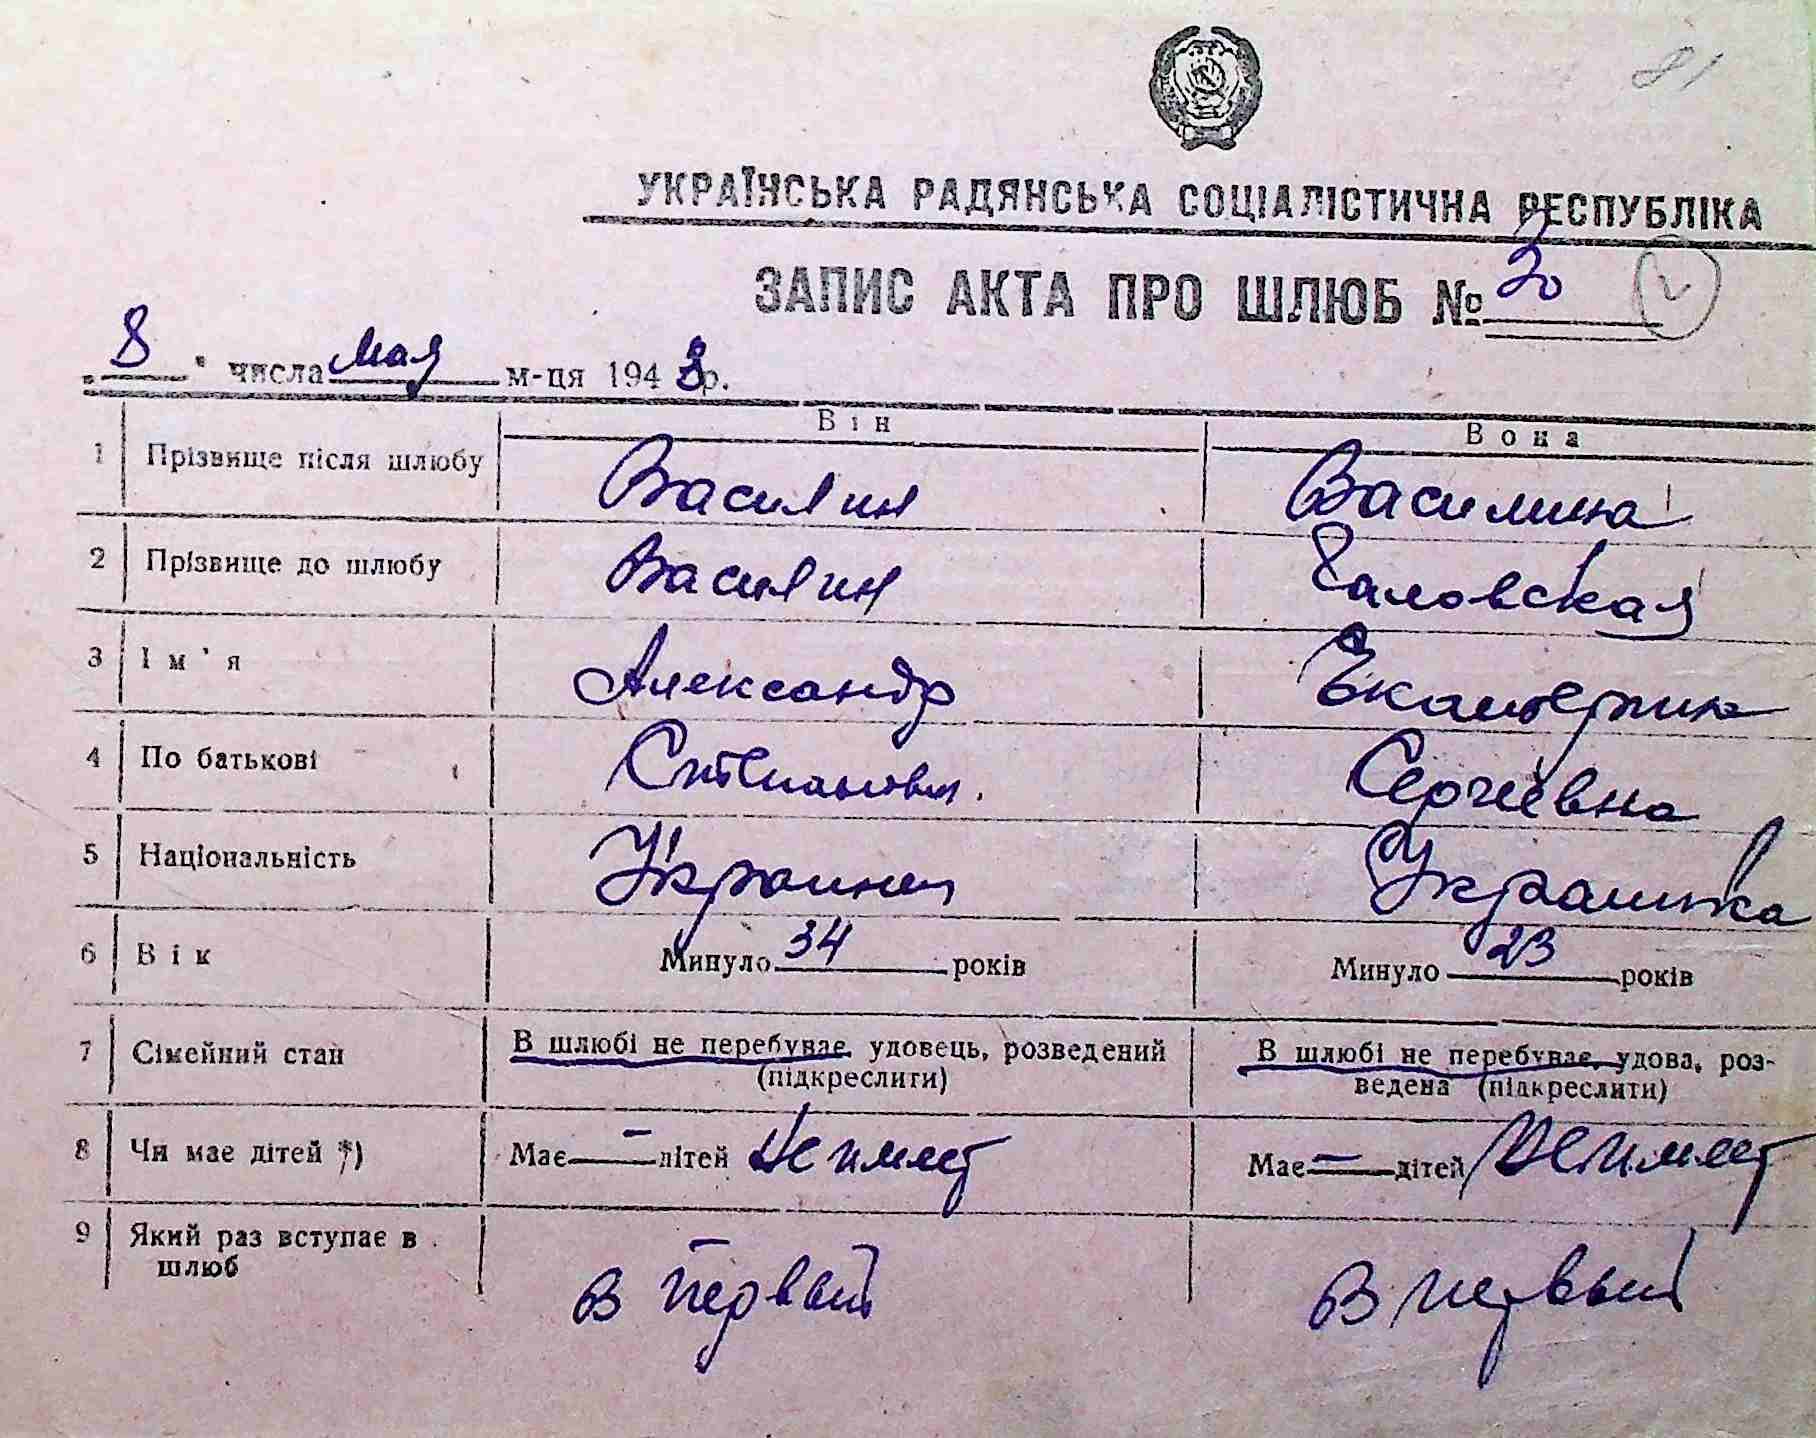 81
УКРАЇНСЬКА РАДЯНСЬКА СОЦІАЛІСТИЧНА РЕСПУБЛІКА
ЗАПИС АКТА ПРО ШЛЮБ № 20
„ 8 " числа мая м-ця 1943 р.
Він Вона
1 Прізвище після шлюбу Василин Василина
2 Прізвище до шлюбу Василин Галовская
3 Ім'я Александр Екатерина
4 По батькові Степанович. Сергеевна
5 Національність Украинец Украинка
6 Вік Минуло 34 років Минуло 23 років
7 Сімейний стан В шлюбі не перебуває, удовець, розведений (підкреслити) В шлюбі не перебуває, удова, роз-
ведена (підкреслити)
8 Чи має дітей *) Має — дітей Не имеет Має — дітей Не имеет
9 Який раз вступає в шлюб в первый в первый